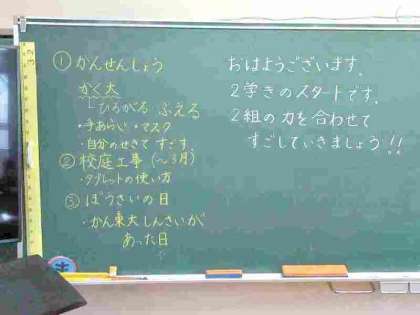 ① かんせんしょう
かく大
└ひろがる ふえる
・手あらい ・マスク
・自分のせきで すごす。
② 校庭工事(〜3月)
・タブレットの使い方
③ ぼうさいの日
・かん東大しんさいが
あった日
おはようございます。
2学きのスタートです。
2組の力を合わせて
すごしていきましょう!!